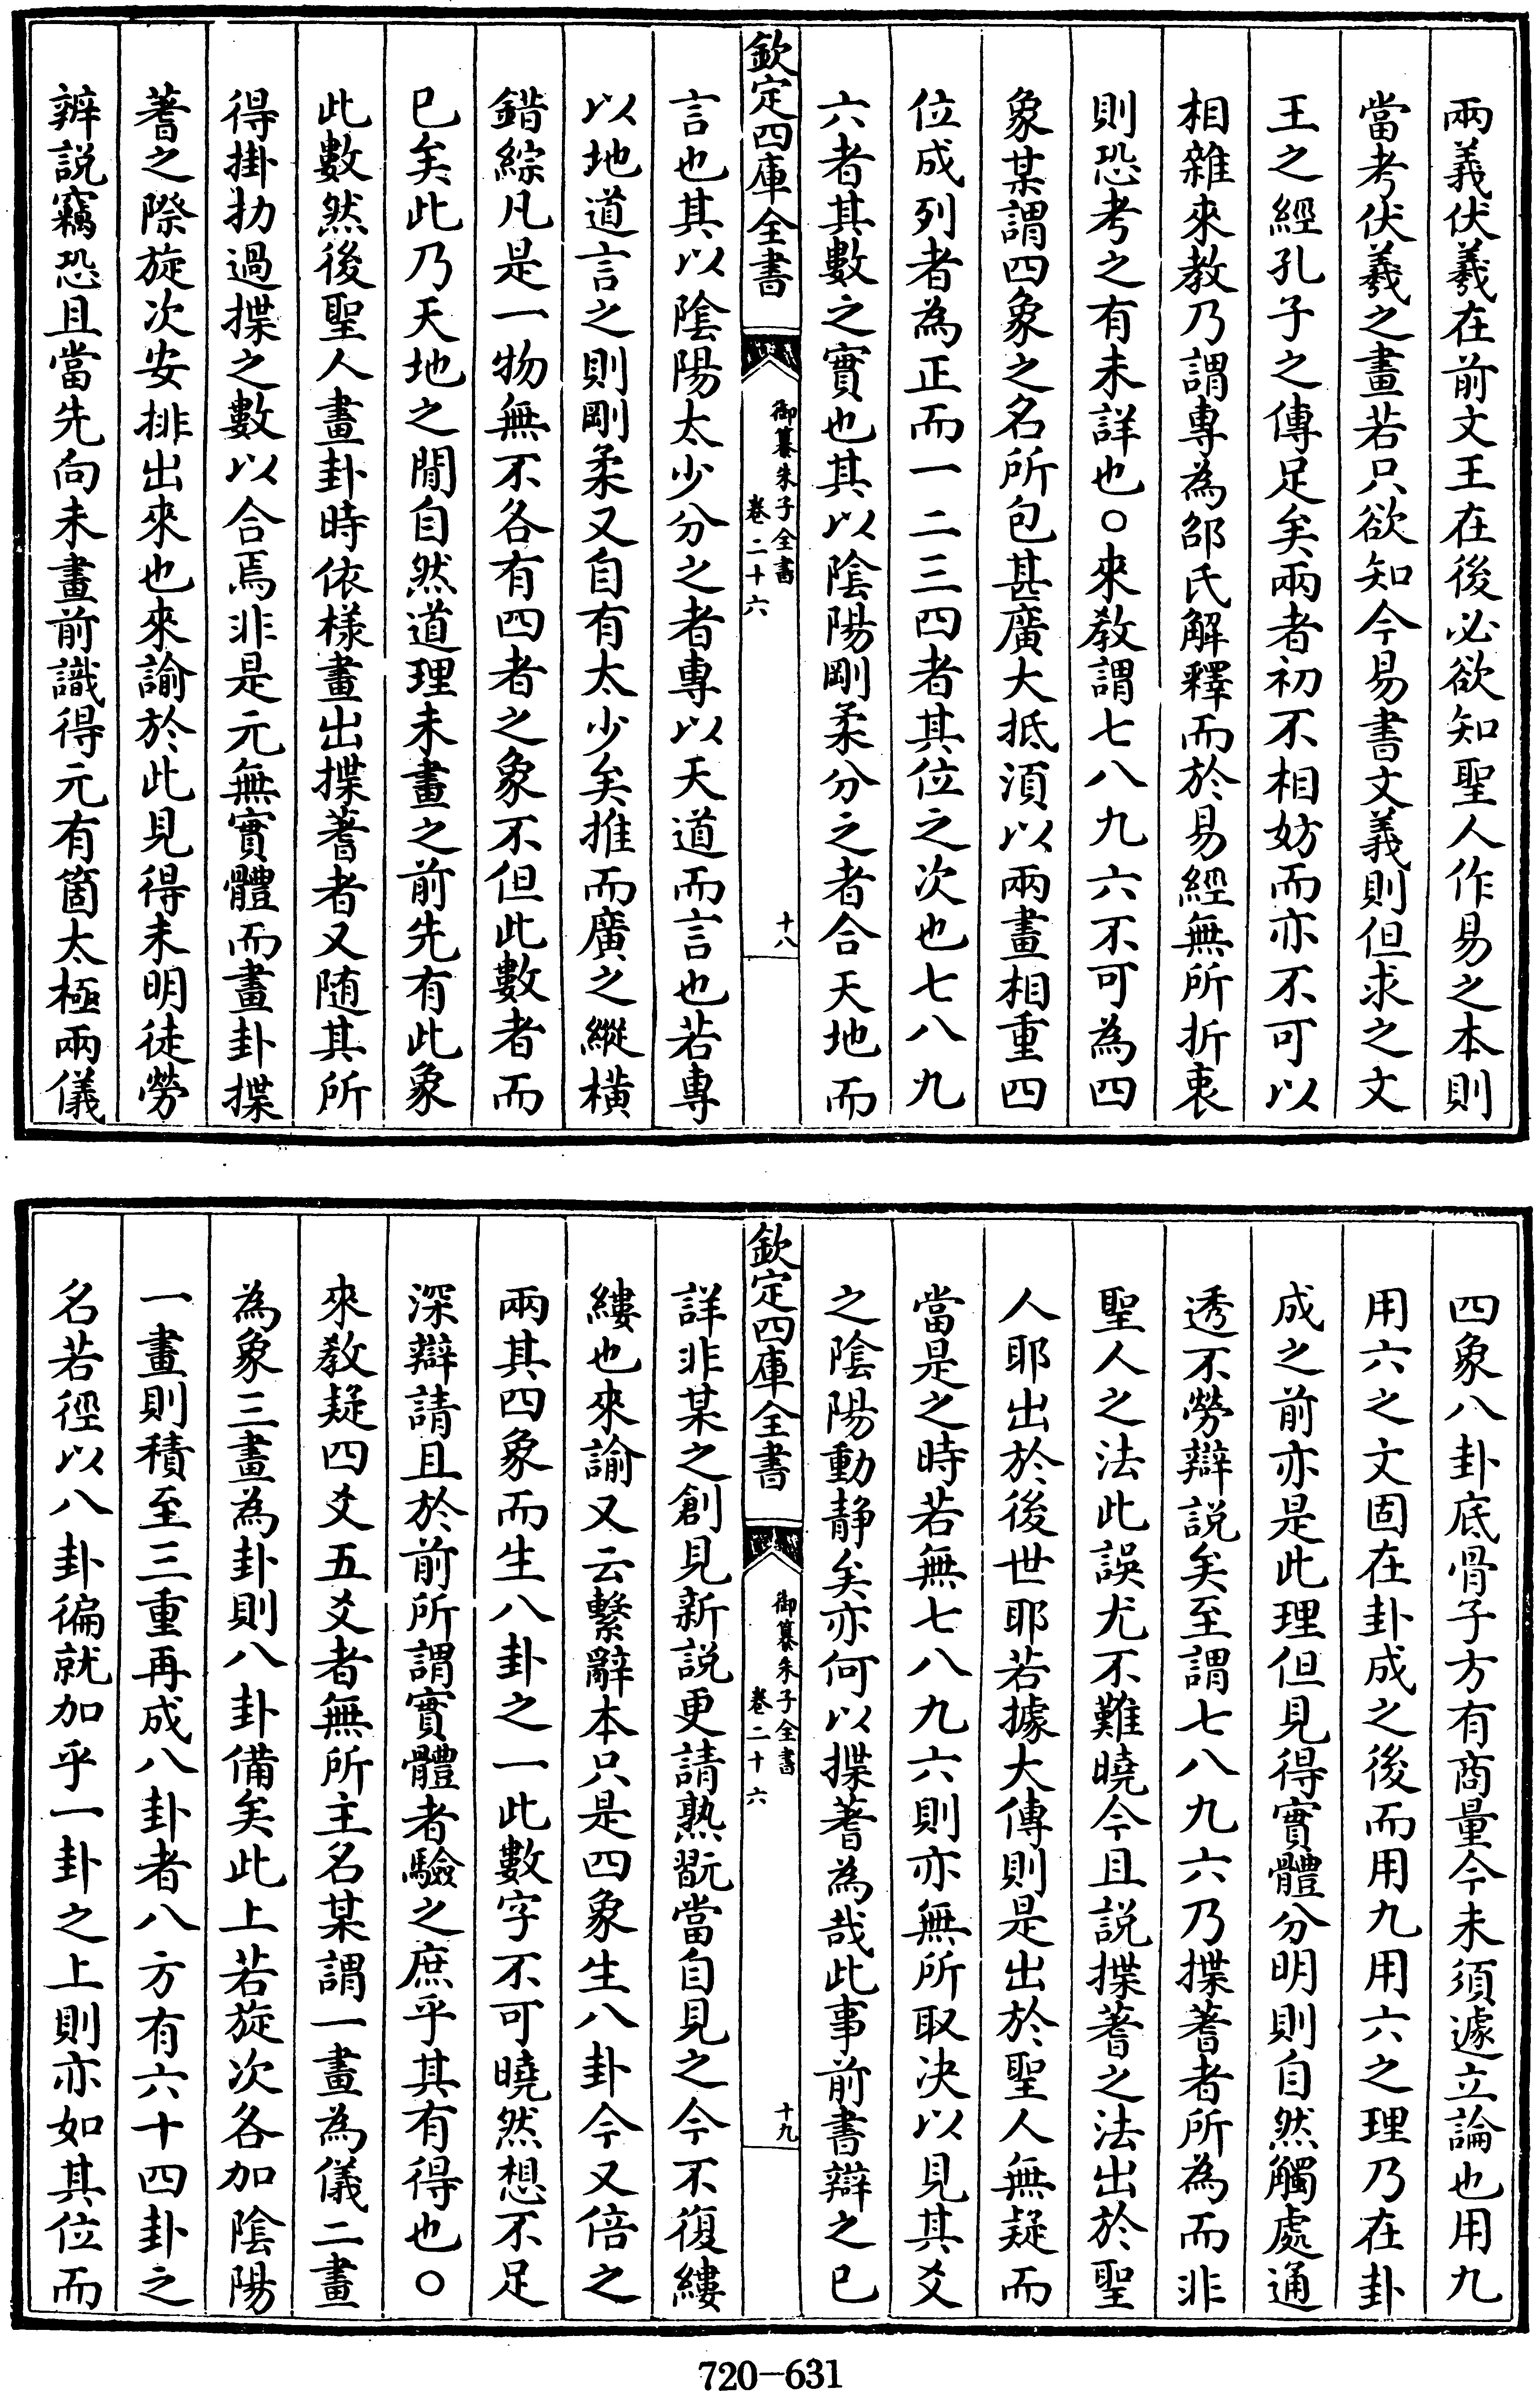 兩義伏羲在前文王在後必欲知聖人作易之本則
當考伏羲之畫若只欲知今易書文義則但求之文
王之經孔子之傳足矣兩者初不相妨而亦不可以
相雜來教乃謂專為邵氏解釋而於易經無所折衷
則恐考之有未詳也○來教謂七八九六不可為四
象某謂四象之名所包甚廣大抵須以兩畫相重四
位成列者為正而一二三四者其位之次也七八九
六者其數之實也其以陰陽剛柔分之者合天地而
欽定四庫全書
御纂朱子全書
卷二十六
十八
言也其以陰陽太少分之者專以天道而言也若專
以地道言之則剛柔又自有太少矣推而廣之縱橫
錯綜凡是一物無不各有四者之象不但此數者而
已矣此乃天地之間自然道理未畫之前先有此象
此數然後聖人畫卦時依樣畫出揲蓍者又隨其所
得掛扐過揲之數以合焉非是元無實體而畫卦揲
蓍之際旋次安排出來也來諭於此見得未明徒勞
辨說竊恐且當先向未畫前識得元有箇太極兩儀
四象八卦底骨子方有商量今未須遽立論也用九
用六之文固在卦成之後而用九用六之理乃在卦
成之前亦是此理但見得實體分明則自然觸處通
透不勞辯說矣至謂七八九六乃揲蓍者所為而非
聖人之法此誤尤不難曉今且說揲蓍之法出於聖
人耶出於後世耶若據大傳則是出於聖人無疑而
當是之時若無七八九六則亦無所取決以見其爻
之陰陽動靜矣亦何以揲蓍為哉此事前書辯之已
欽定四庫全書
御纂朱子全書
卷二十六
十九
詳非某之創見新說更請熟翫當自見之今不復縷
縷也來諭又云繫辭本只是四象生八卦今又倍之
兩其四象而生八卦之一此數字不可曉然想不足
深辯請且於前所謂實體者驗之庶乎其有得也○
來教疑四爻五爻者無所主名某謂一畫為儀二畫
為象三畫為卦則八卦備矣此上若旋次各加陰陽
一畫則積至三重再成八卦者八方有六十四卦之
名若徑以八卦徧就加乎一卦之上則亦如其位而
720-631